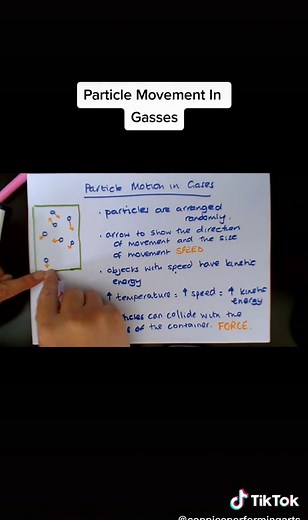 Particle Movement In
Gasses
Particle Motion in Gases
• particles are arranged
randomly.
• arrow to show the direction
of movement and the size
of movement SPEED
• objects with speed have kinetic
energy
↑ temperature = ↑ speed = ↑ kinetic
energy
can collide with the
of the container. FORCE.
TikTok